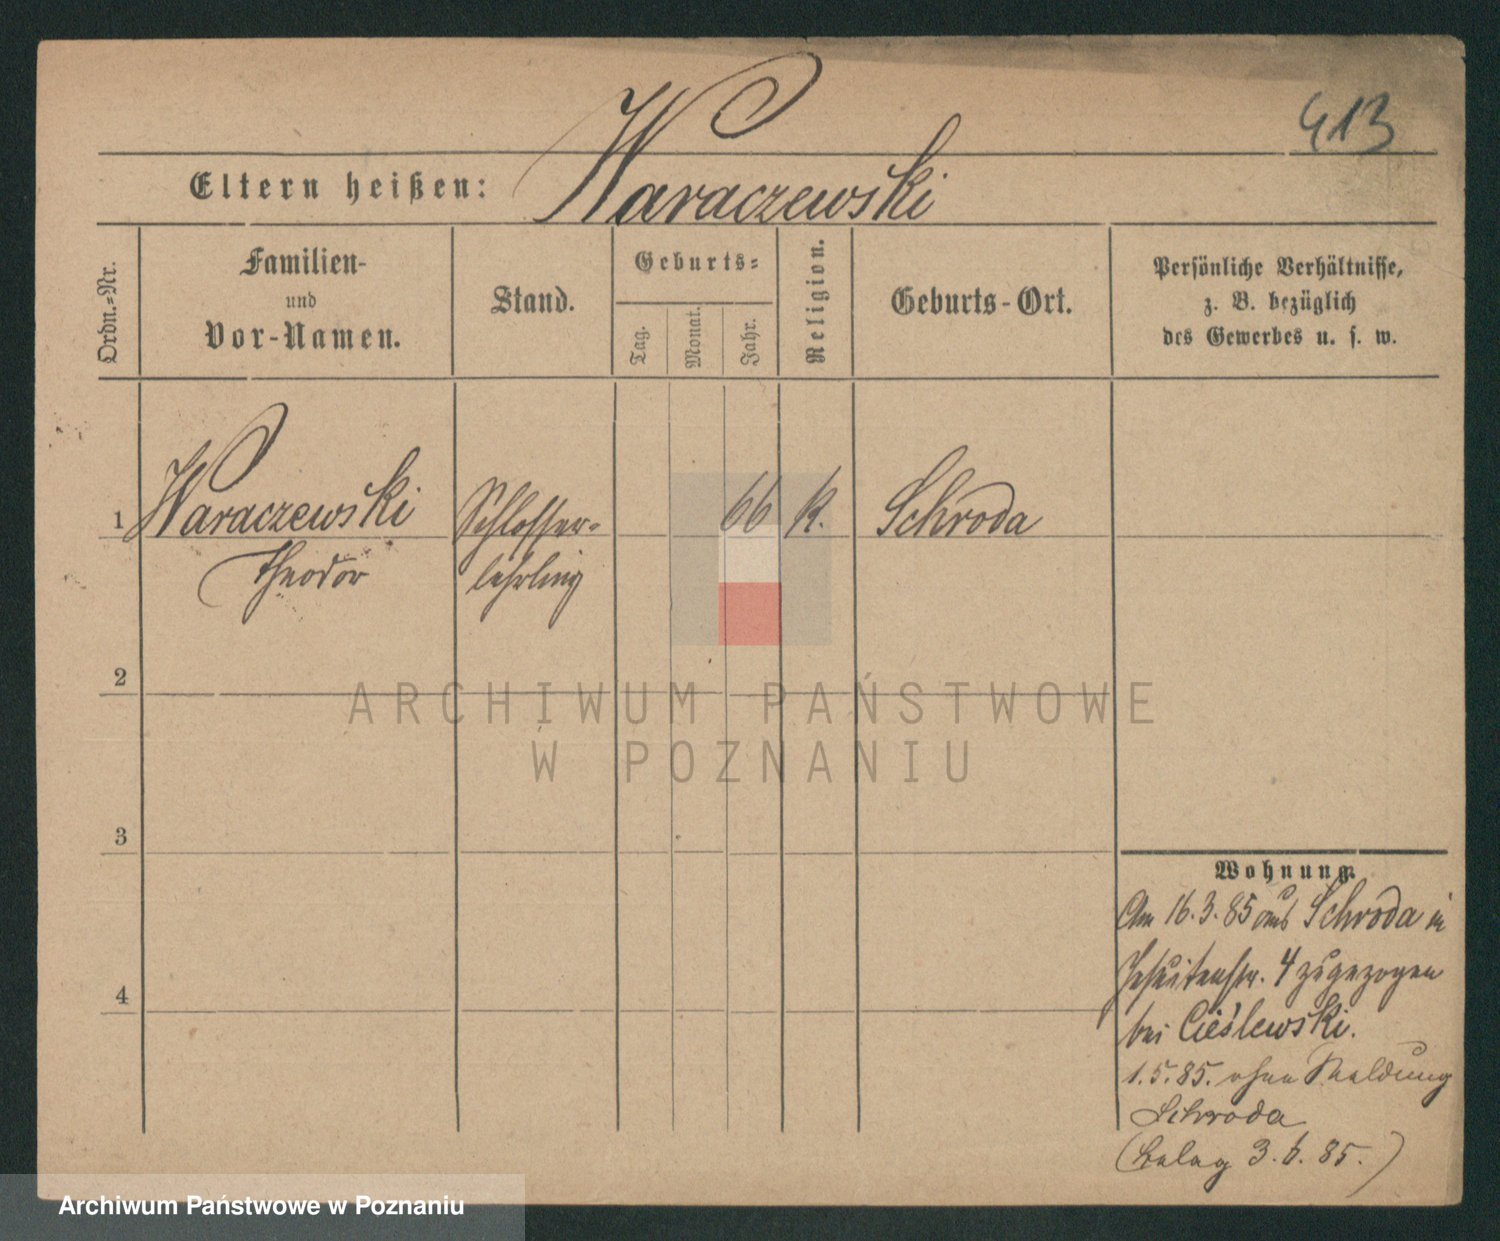 413
Eltern heißen: Waraczewski
Ordn.-Nr.
Familien-
und
Vor-Namen.
Stand.
Geburts-
Tag.
Monat.
Jahr.
Religion.
Geburts-Ort.
Persönliche Verhältnisse,
z. B. bezüglich
des Gewerbes u. s. w.
1 Waraczewski Schlosser- 66 K. Schroda
Theodor lehrling
2
ARCHIWUM PAŃSTWOWE
W POZNANIU
3
Wohnung.
Am 16.3.85 aus Schroda in
Jesuitenstr. 4 zugezogen
4
bei Cieślewski.
1.5.85. ohne Meldung
Schroda
(Belag 3.6.85.)
Archiwum Państwowe w Poznaniu